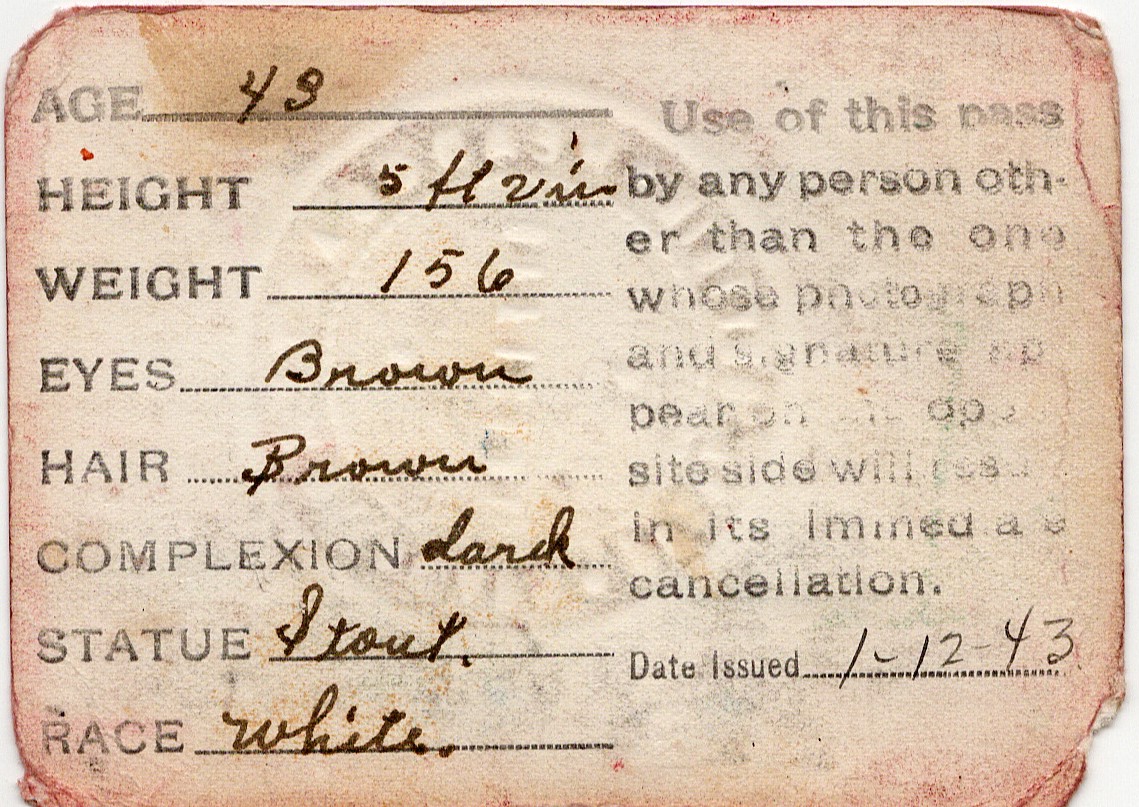 AGE 43
HEIGHT 5 ft 2 in
WEIGHT 156
EYES Brown
HAIR Brown
COMPLEXION darck
STATUE Stout.
RACE White.
Use of this pass
by any person oth-
er than the one
whose photograph
and signature ap
pear on the oppo
site side will res
in its immediate
cancellation.
Date Issued 1-12-43